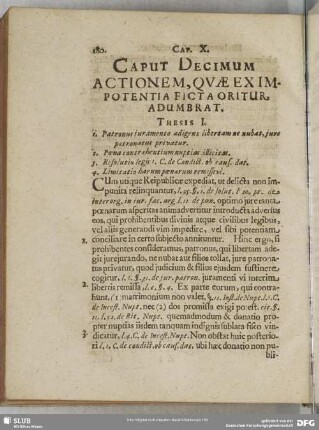 180. CAP. X.
CAPUT DECIMUM
ACTIONEM, QVÆ EX IM-
POTENTIA FICTA ORITUR,
ADUMBRAT.
THESIS I.
1. Patronus juramento adigens libertam ne nubat, jure
patronatus privatur.
2. Pœna contrahentium nuptias illicitas.
3. Resolutio legis 1. C. de Condict. ob caus. dat.
4. Limitatio harum pœnarum remissivè.
CUm utique Reipublicæ expediat, ut delicta non im-
punita relinquantur,
interrog. in jur. fac. arg. l. 11. de pœn. optimo jure
pœnastum asperitas animadvertitur introducta adversus
eos, qui prohibentibus divinis atque civilibus legibus,
vel aliis generandi vim impedire, vel sibi potentiam
2 conciliare in certo subjecto annituntur. Hinc ergo, si
prohibentes consideramus, patronus, qui libertam ade-
git jurejurando, ne nubat aut filios tollat, jure patrona-
tus privatur, quod judicium & filius ejusdem sustinere
cogitur, juramenti vi interim
libertis remissa, Ex parte eorum, qui contra-
hunt, (1) matrimonium non valet, Inst. de Nupt. l. 1. C.
de Incest. Nupt. nec (2) dos promissa exigi potest.
de Rit. Nupt. quemadmodum & donatio pro-
pter nuptias iisdem tanquam indignis sublata fisco vin-
3 dicatur, l. 4. C. de Incest. Nupt. Non obstat huic posterio-
ri l. 1. C. de condict. ob caus. dat. ubi hæc donatio non pu-
bli-
SLUB
Wir führen Wissen.
gefördert von der
Deutschen Forschungsgemeinschaft
DFG